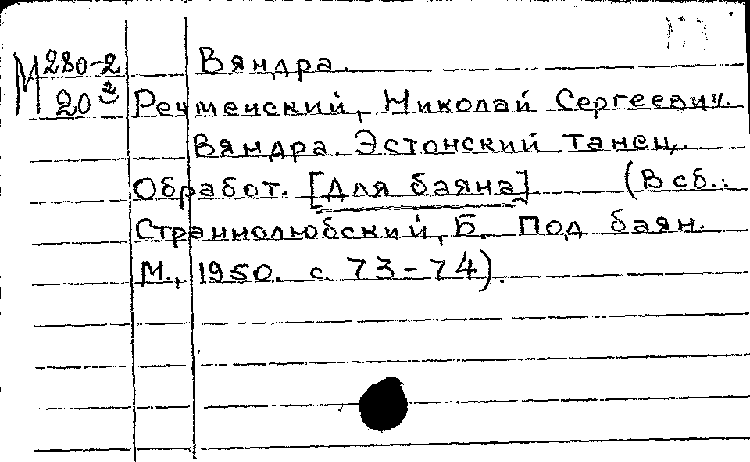 М 280-2 Вяндра.
20 Речменский, Николай Сергеевич.
Вяндра. Эстонский танец.
Обработ. [Для баяна] (В сб.:
Страннолюбский, Б. Под баян.
М., 1950. с. 73-74).